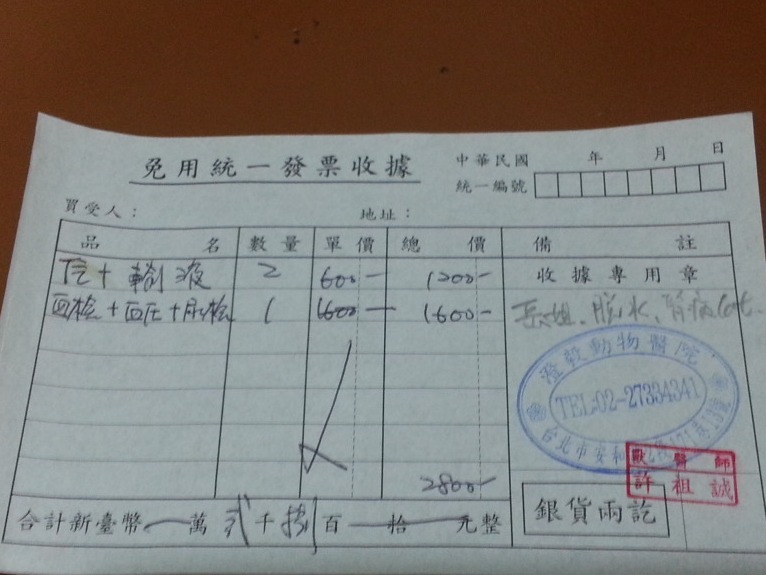 免用統一發票收據
中華民國 年 月 日
統一編號
買受人： 地址：
品名 數量 單價 總價 備註
+ 輸液 2 600- 1200-
收據專用章
血檢+血压+尿檢 1 1600- 1600-
脫水、腎病
澄毅動物醫院
TEL:02-27334341
台北市安和
獸醫師
許祖誠
2800-
銀貨兩訖
合計新臺幣 萬 貳 千 捌 百 拾 元整